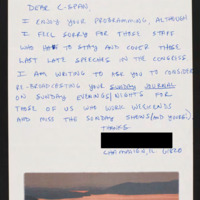 DEAR C-SPAN,
I ENJOY YOUR PROGRAMMING, ALTHOUGH
I FEEL SORRY FOR THOSE STAFF
WHO HAVE TO STAY AND COVER THOSE
LAST LATE SPEECHES IN THE CONGRESS.
I AM WRITING TO ASK YOU TO CONSIDER
RE-BROADCASTING YOUR SUNDAY JOURNAL
ON SUNDAY EVENINGS/NIGHTS FOR
THOSE OF US WHO WORK WEEKENDS
AND MISS THE SUNDAY SHOWS (AND YOURS).
THANKS
CHAMPAIGN, IL